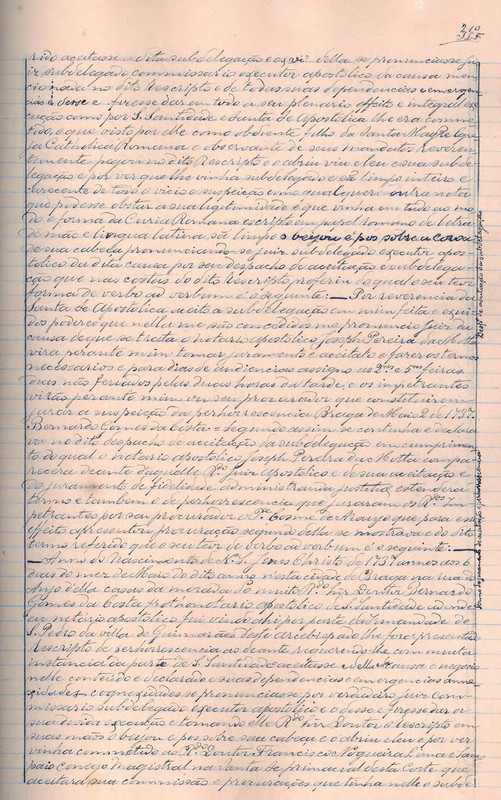 rido acatasse a dita subdelegação e ex vi della se pronunciasse ju
iz subdelegado commissario executor apostolico da causa men
cionada no dito Rescripto e de todas suas dependencias e emergen
cias e desse e fizesse dar em todo a seu plenario effeito e integral exe
cução como por S. Santidade e Santa Sé Apostolica lhe era comme
tido, o que visto por elle como obdiente filho da Santa Madre Igre
ja Catholica Romana e observante de seus mandatos reveren
temente pegou no dito Rescripto e o abriu viu e leu e sua subde
legação e por ver que lhe vinha subdelegado e são limpo inteiro e
carecente de todo o vicio e suspeição como qualquer outra nota
que podesse obstar a sua legitimidade e que vinha em tudo ao mo
do e forma da Curia Romana escripto em papel romano de letra
de mão e lingua latina, são limpo o beijou e pos sobre a coroa
de sua cabeça pronunciando-se juiz subdelegado executor apos
tolico da dita causa por seu despacho de aceitação e subdelega
ção que nas costas do dito Rescripto proferiu do qual o seu teor
e forma de verbo ad verbum é o seguinte: — Por reverencia da
Santa Sé Apostolica aceito a subdelegação em mim feita e usan
dos poderes que nella me são concedidos me pronuncio juiz da
causa de que se tracta o notario apostolico Joseph Pereira da Motta
virá perante mim tomar juramento e aceital-o e fazer os termos
necessarios e para dias de audiencias assigno as 2as e 5as feiras
duas não feriados pelas duas horas da tarde, e os impetrantes
virão perante mim ou seu procurador que constituirem
jurar a suspeição da perhorrescencia Braga de Maio 2 de 1757.
Bernardo Gomes da Costa = Segundo assim se continha e declara
va no dito despacho de aceitação da subdelegação em cumprimen
to do qual o notario apostolico Joseph Pereira da Motta compa
receu deante daquelle Rdo Juiz Apostolico e de sua aceitação e
do juramento de fidelidade
termo e tambem o de perhorrescencia que juraram os Rdos im
petrantes por seu procurador o Pe Cosme de Araujo que para esse
effeito apresentou procuração segundo della se mostrava e do dito
termo referido que o seu teor de verbo ad verbum é o seguinte: —
— Anno do Nascimento de N. S. Jesus Christo de 1757 annos aos 6
dias do mez de Maio do dito anno, nesta cidade de Braga na rua do
Anjo della casas da morada do muito Rdo Snr. Doutor Bernardo
Gomes da Costa Prothonotario apostolico de S. Santidade aonde
eu notario apostolico fui vindo ahi por parte da Irmandade de
S. Pedro da villa de Guimarães deste arcebispado lhe foi apresentado
Rescripto de perhorrescencia ao deante requerendo-lhe com muita
instancia da parte de S. Santidade aceitasse e della causa e negocio
nelle contheudo e declarado e suas dependencias e emergencias anne
xidades e connexidades se pronunciasse por verdadeiro juiz com
missario subdelegado executor apostolico e o desse e fizesse dar a
sua devida execução e tomando elle Rdo Snr. Doutor o Rescripto em
suas mãos o beijou e pos sobre sua cabeça e o abriu e leu e por ver
vinha commettido ao Rdo Doutor Francisco Nogueira Lima e Sam
paio conego Magistral na Santa Sé primacial desta Corte que
aceitara sua commissão e procurações que tinha nelle o subde